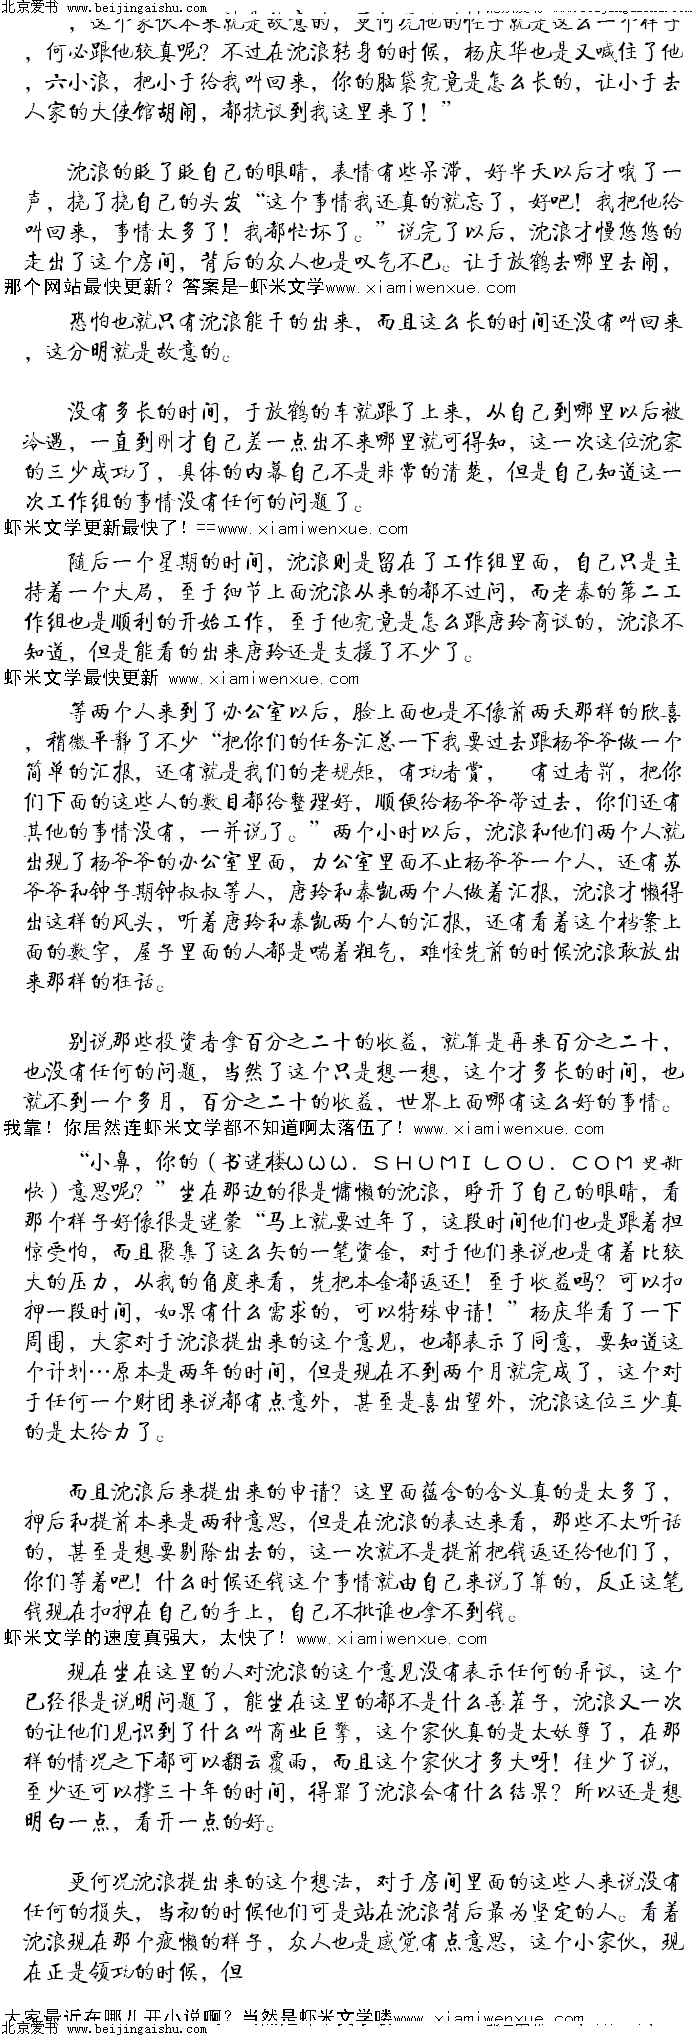 北京爱书 www.beijingaishu.com
，这个家伙本来就是故意的，更何况他的性子就是这么一个样子
，何必跟他较真呢？不过在沈浪转身的时候，杨庆华也是又喊住了他
，六小浪，把小于给我叫回来，你的脑袋究竟是怎么长的，让小于去
人家的大使馆胡闹，都抗议到我这里来了！”
沈浪的眨了眨自己的眼睛，表情有些呆滞，好半天以后才哦了一
声，挠了挠自己的头发“这个事情我还真的就忘了，好吧！我把他给
叫回来，事情太多了！我都忙坏了。”说完了以后，沈浪才慢悠悠的
走出了这个房间，背后的众人也是叹气不已。让于放鹤去哪里去闹，
那个网站最快更新？答案是-虾米文学www.xiamiwenxue.com
恐怕也就只有沈浪能干的出来，而且这么长的时间还没有叫回来
，这分明就是故意的。
没有多长的时间，于放鹤的车就跟了上来，从自己到哪里以后被
冷遇，一直到刚才自己差一点出不来哪里就可得知，这一次这位沈家
的三少成功了，具体的内幕自己不是非常的清楚，但是自己知道这一
次工作组的事情没有任何的问题了。
虾米文学更新最快了！==www.xiamiwenxue.com
随后一个星期的时间，沈浪则是留在了工作组里面，自己只是主
持着一个大局，至于细节上面沈浪从来的都不过问，而老秦的第二工
作组也是顺利的开始工作，至于他究竟是怎么跟唐玲商议的，沈浪不
知道，但是能看的出来唐玲还是支援了不少了。
虾米文学最快更新 www.xiamiwenxue.com
等两个人来到了办公室以后，脸上面也是不像前两天那样的欣喜
，稍微平静了不少“把你们的任务汇总一下我要过去跟杨爷爷做一个
简单的汇报，还有就是我们的老规矩，有功者赏， 有过者罚，把你
们下面的这些人的数目都给整理好，顺便给杨爷爷带过去，你们还有
其他的事情没有，一并说了。”两个小时以后，沈浪和他们两个人就
出现了杨爷爷的办公室里面，力公室里面不止杨爷爷一个人，还有苏
爷爷和钟子期钟叔叔等人，唐玲和秦凯两个人做着汇报，沈浪才懒得
出这样的风头，听着唐玲和秦凯两个人的汇报，还有看着这个档案上
面的数字，屋子里面的人都是喘着粗气，难怪先前的时候沈浪敢放出
来那样的狂话。
别说那些投资者拿百分之二十的收益，就算是再来百分之二十，
也没有任何的问题，当然了这个只是想一想，这个才多长的时间，也
就不到一个多月，百分之二十的收益，世界上面哪有这么好的事情。
我靠！你居然连虾米文学都不知道啊太落伍了！www.xiamiwenxue.com
“小鼻，你的（书迷楼ＷＷＷ．ＳＨＵＭＩＬＯＵ．ＣＯＭ更新
快）意思呢？”坐在那边的很是慵懒的沈浪，睁开了自己的眼睛，看
那个样子好像很是迷蒙“马上就要过年了，这段时间他们也是跟着担
惊受怕，而且聚集了这么矢的一笔资金，对于他们来说也是有着比较
大的压力，从我的角度来看，先把本金都返还！至于收益吗？可以扣
押一段时间，如果有什么需求的，可以特殊申请！”杨庆华看了一下
周围，大家对于沈浪提出来的这个意见，也都表示了同意，要知道这
个计划…原本是两年的时间，但是现在不到两个月就完成了，这个对
于任何一个财团来说都有点意外，甚至是喜出望外，沈浪这位三少真
的是太给力了。
而且沈浪后来提出来的申请？这里面蕴含的含义真的是太多了，
押后和提前本来是两种意思，但是在沈浪的表达来看，那些不太听话
的，甚至是想要剔除出去的，这一次就不是提前把钱返还给他们了，
你们等着吧！什么时候还钱这个事情就由自己来说了算的，反正这笔
钱现在扣押在自己的手上，自己不批谁也拿不到钱。
虾米文学的速度真强大，太快了！www.xiamiwenxue.com
现在坐在这里的人对沈浪的这个意见没有表示任何的异议，这个
已经很是说明问题了，能坐在这里的都不是什么善茬子，沈浪又一次
的让他们见识到了什么叫商业巨擎，这个家伙真的是太妖孽了，在那
样的情况之下都可以翻云覆雨，而且这个家伙才多大呀！往少了说，
至少还可以撑三十年的时间，得罪了沈浪会有什么结果？所以还是想
明白一点，看开一点的好。
更何况沈浪提出来的这个想法，对于房间里面的这些人来说没有
任何的损失，当初的时候他们可是站在沈浪背后最为坚定的人。看着
沈浪现在那个疲懒的样子，众人也是感觉有点意思，这个小家伙，现
在正是领功的时候，但
大家最近在哪儿开小说啊？当然是虾米文学喽www.xiamiwenxue.com
北京爱书 www.beijingaishu.com